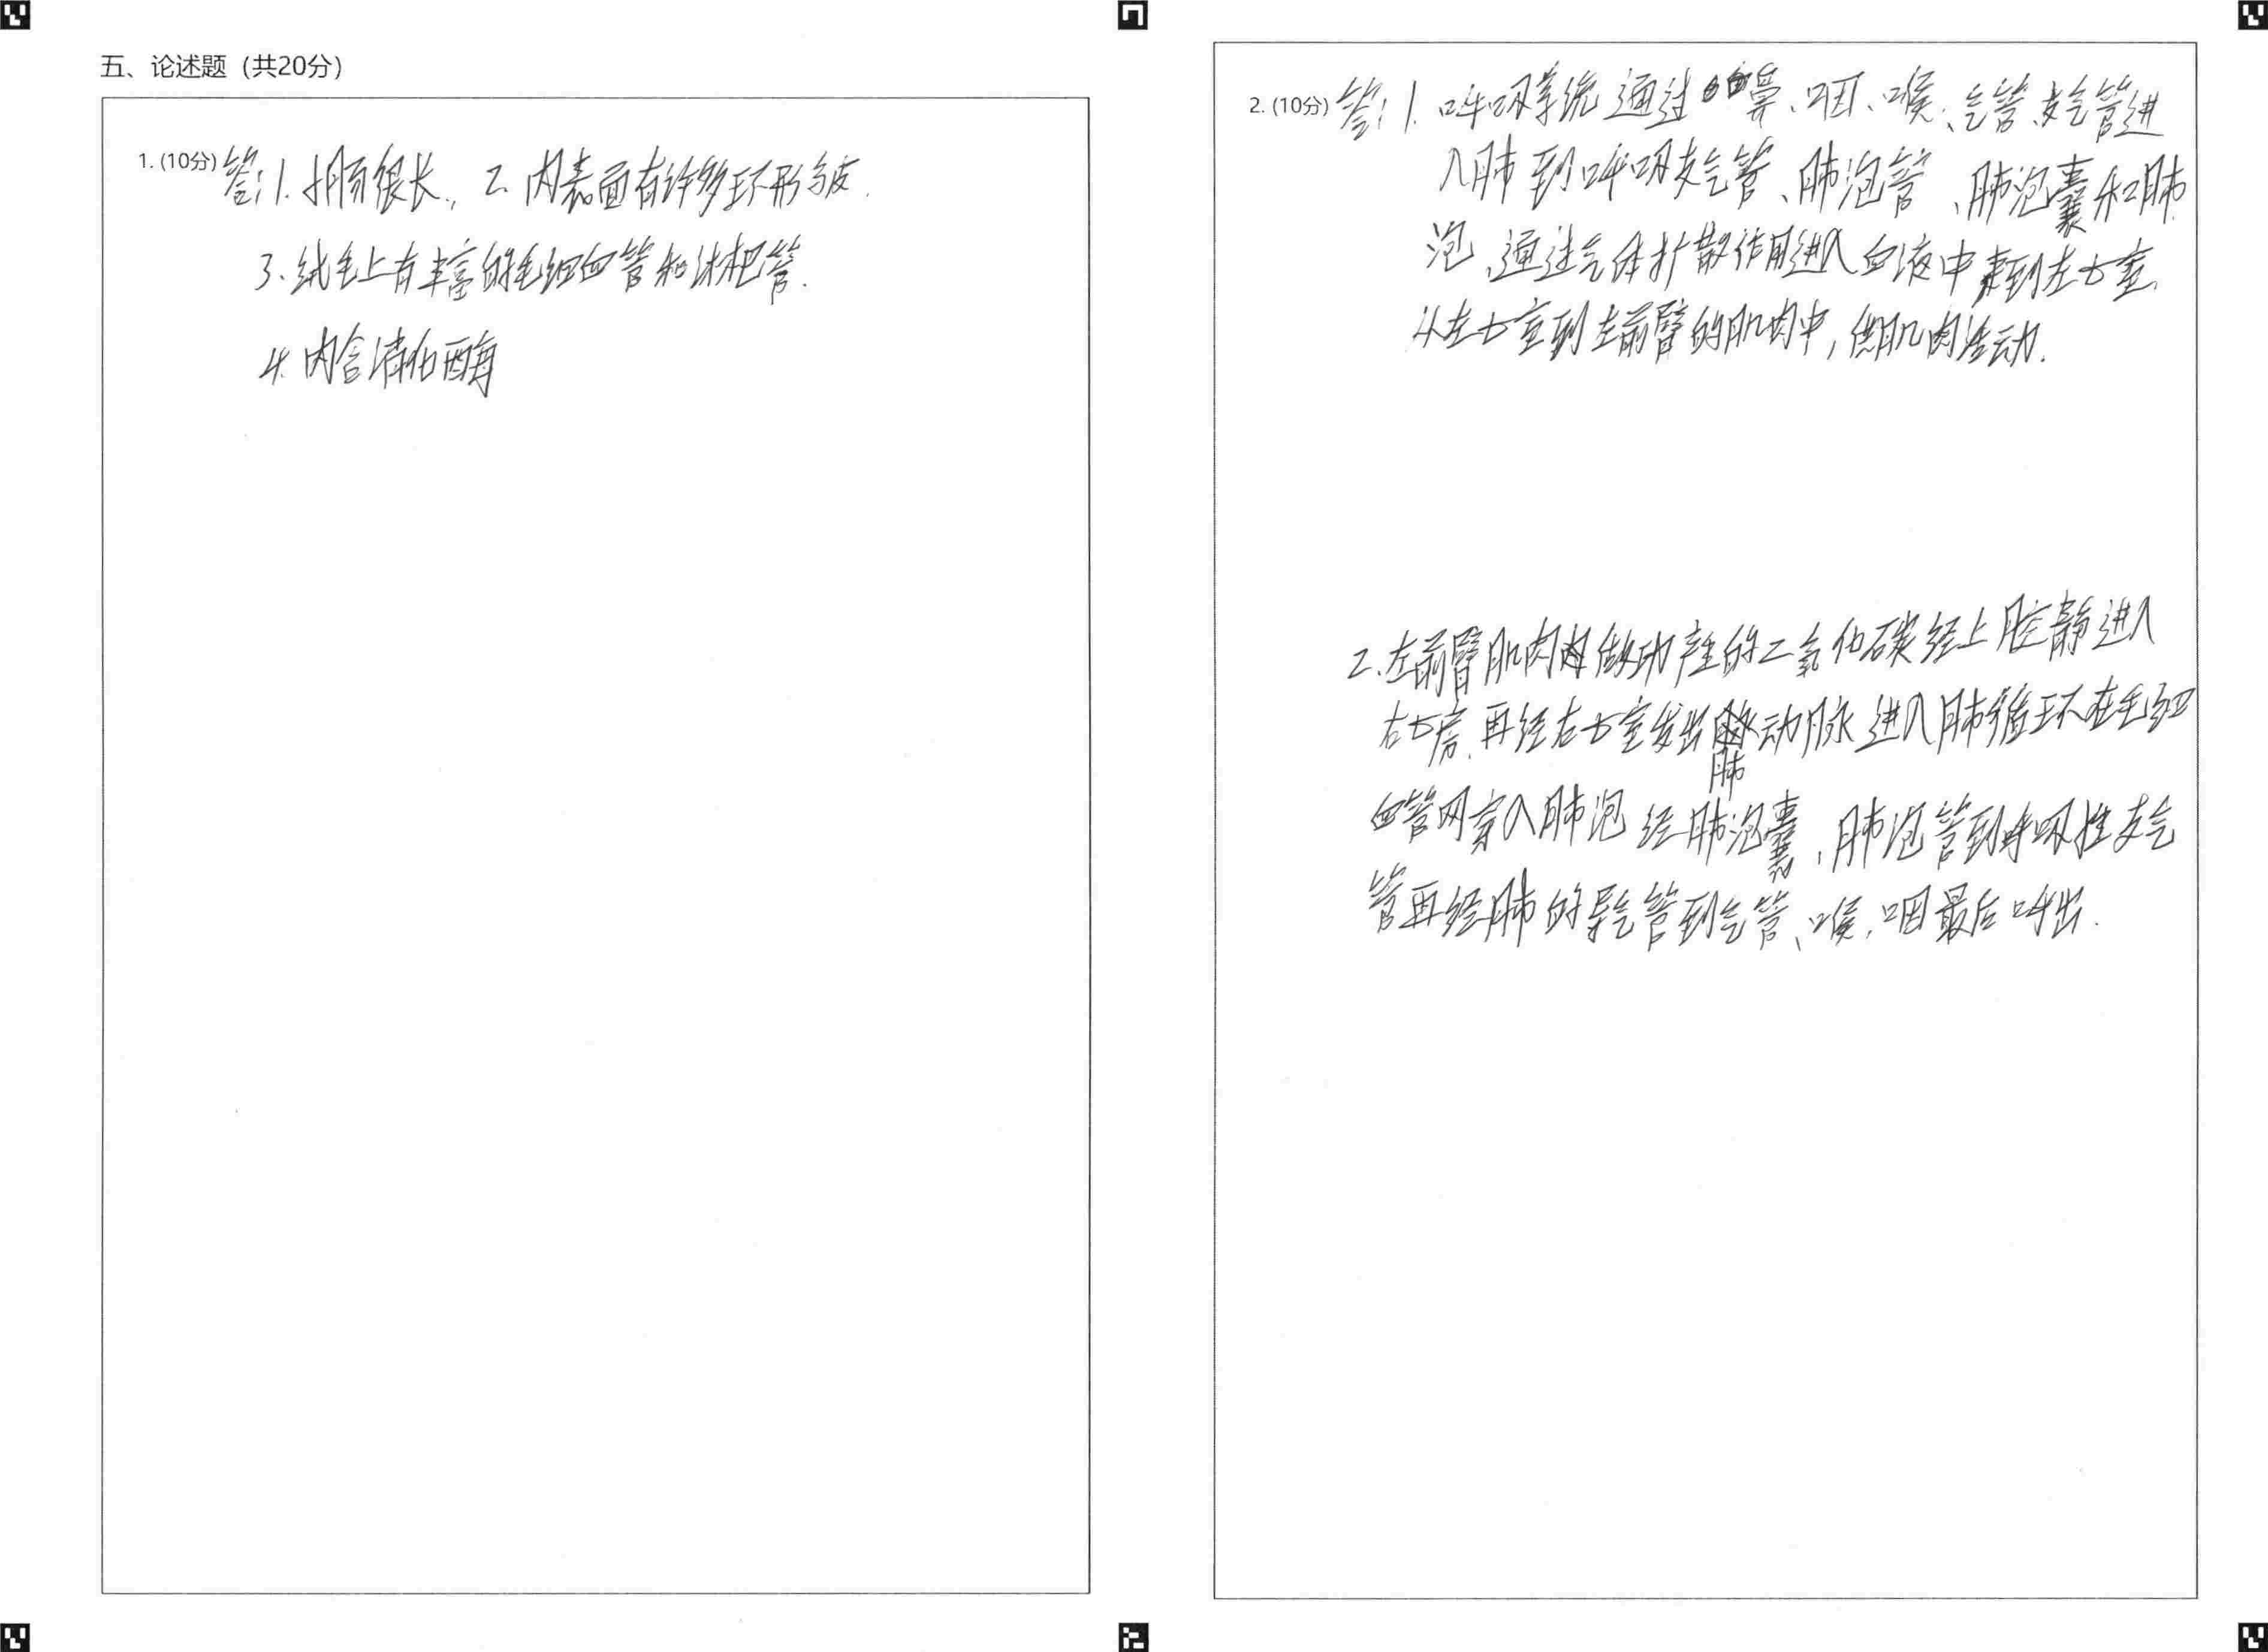 五、论述题（共20分）
1. (10分) 答：1. 小肠很长., 2. 内表面有许多环形皱.
3、绒毛上有丰富的毛细血管和淋杷管.
4. 内含消化酶
2. (10分) 答：1. 呼吸系统通过鼻、咽、喉、气管、支气管进
入肺到呼吸支气管、肺泡管、肺泡囊和肺
泡、通过气体扩散作用进入血液中来到左心室、
从左心室到左前臂的肌肉中，供肌肉活动.
2.左前臂肌肉做功产生的二氧化碳经上腔静进入
右心房.再经右心室发出肺动脉进入肺循环在毛细
血管网穿入肺泡经肺泡囊、肺泡管到呼吸性支气
管再经肺的导气管到气管、喉、咽最后呼出.